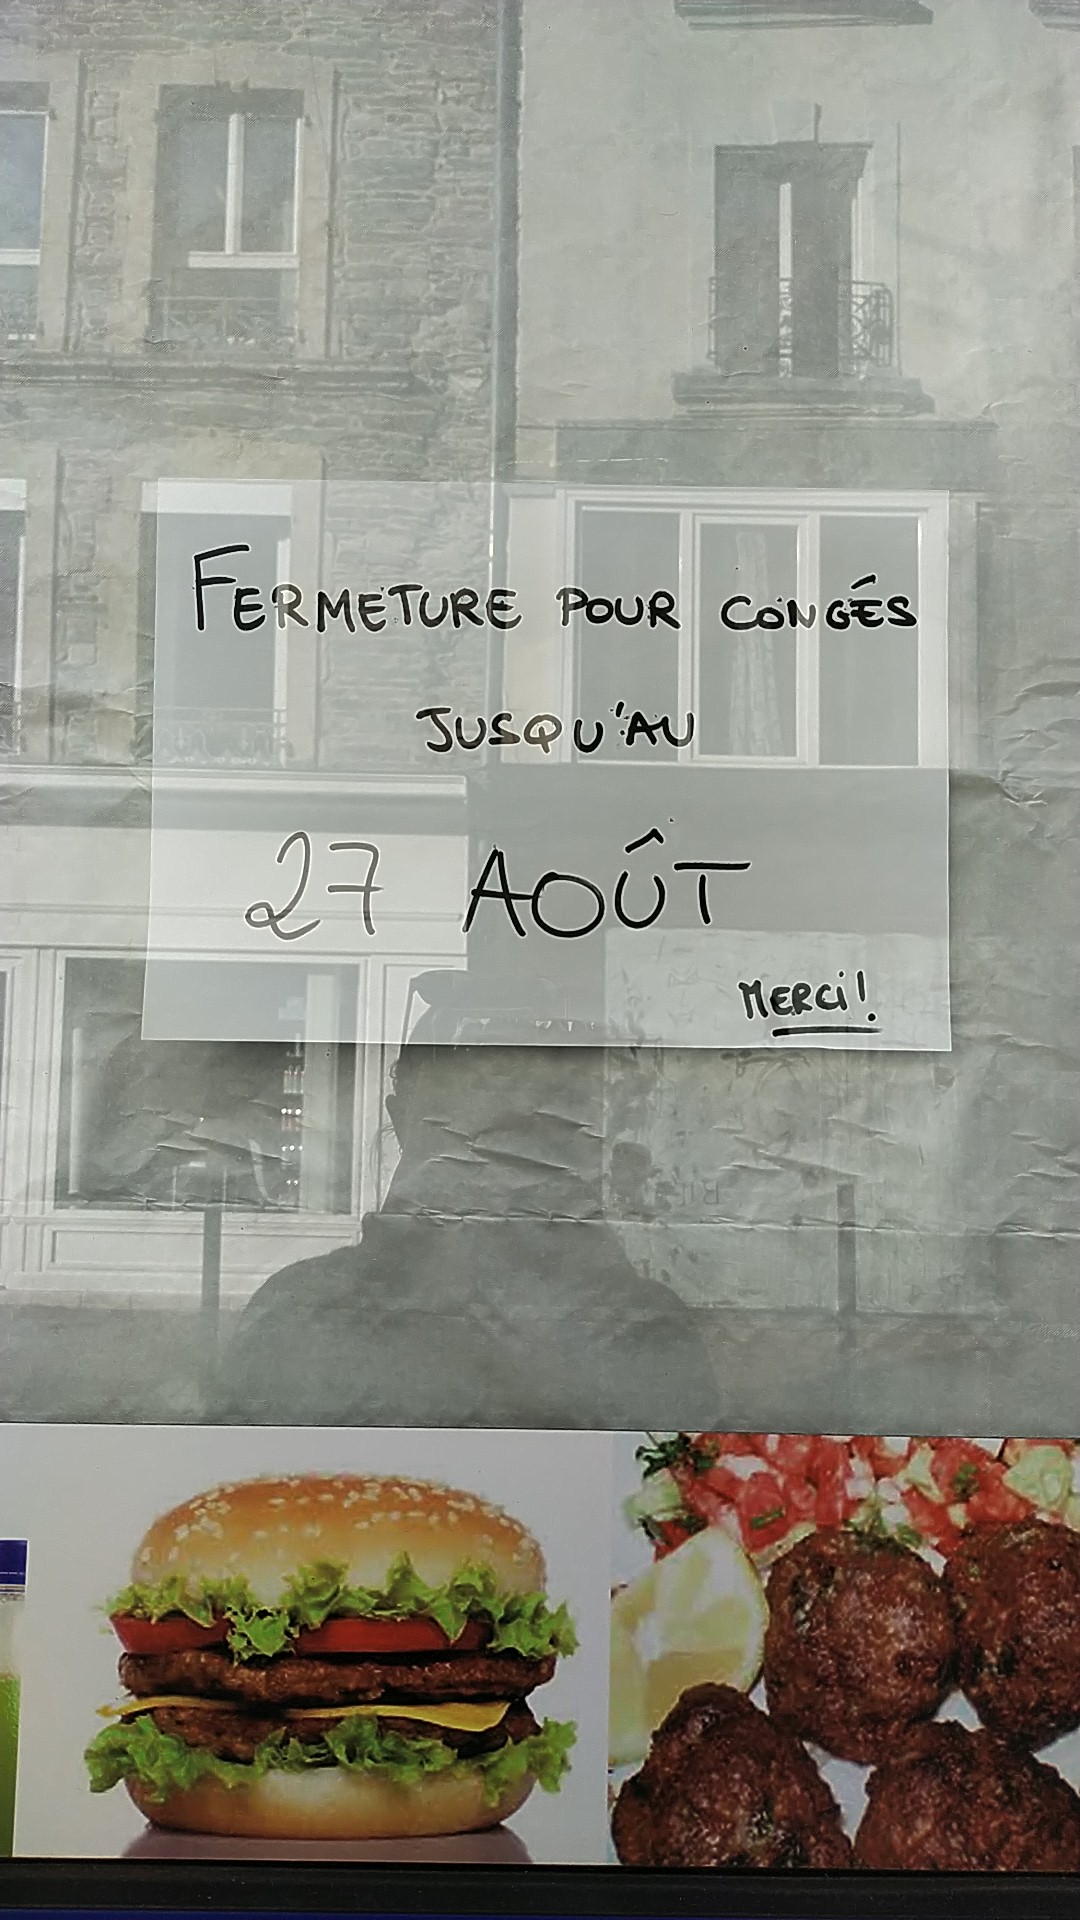 FERMETURE POUR CONGÉS
JUSQU'AU
27 AOÛT
MERCi!